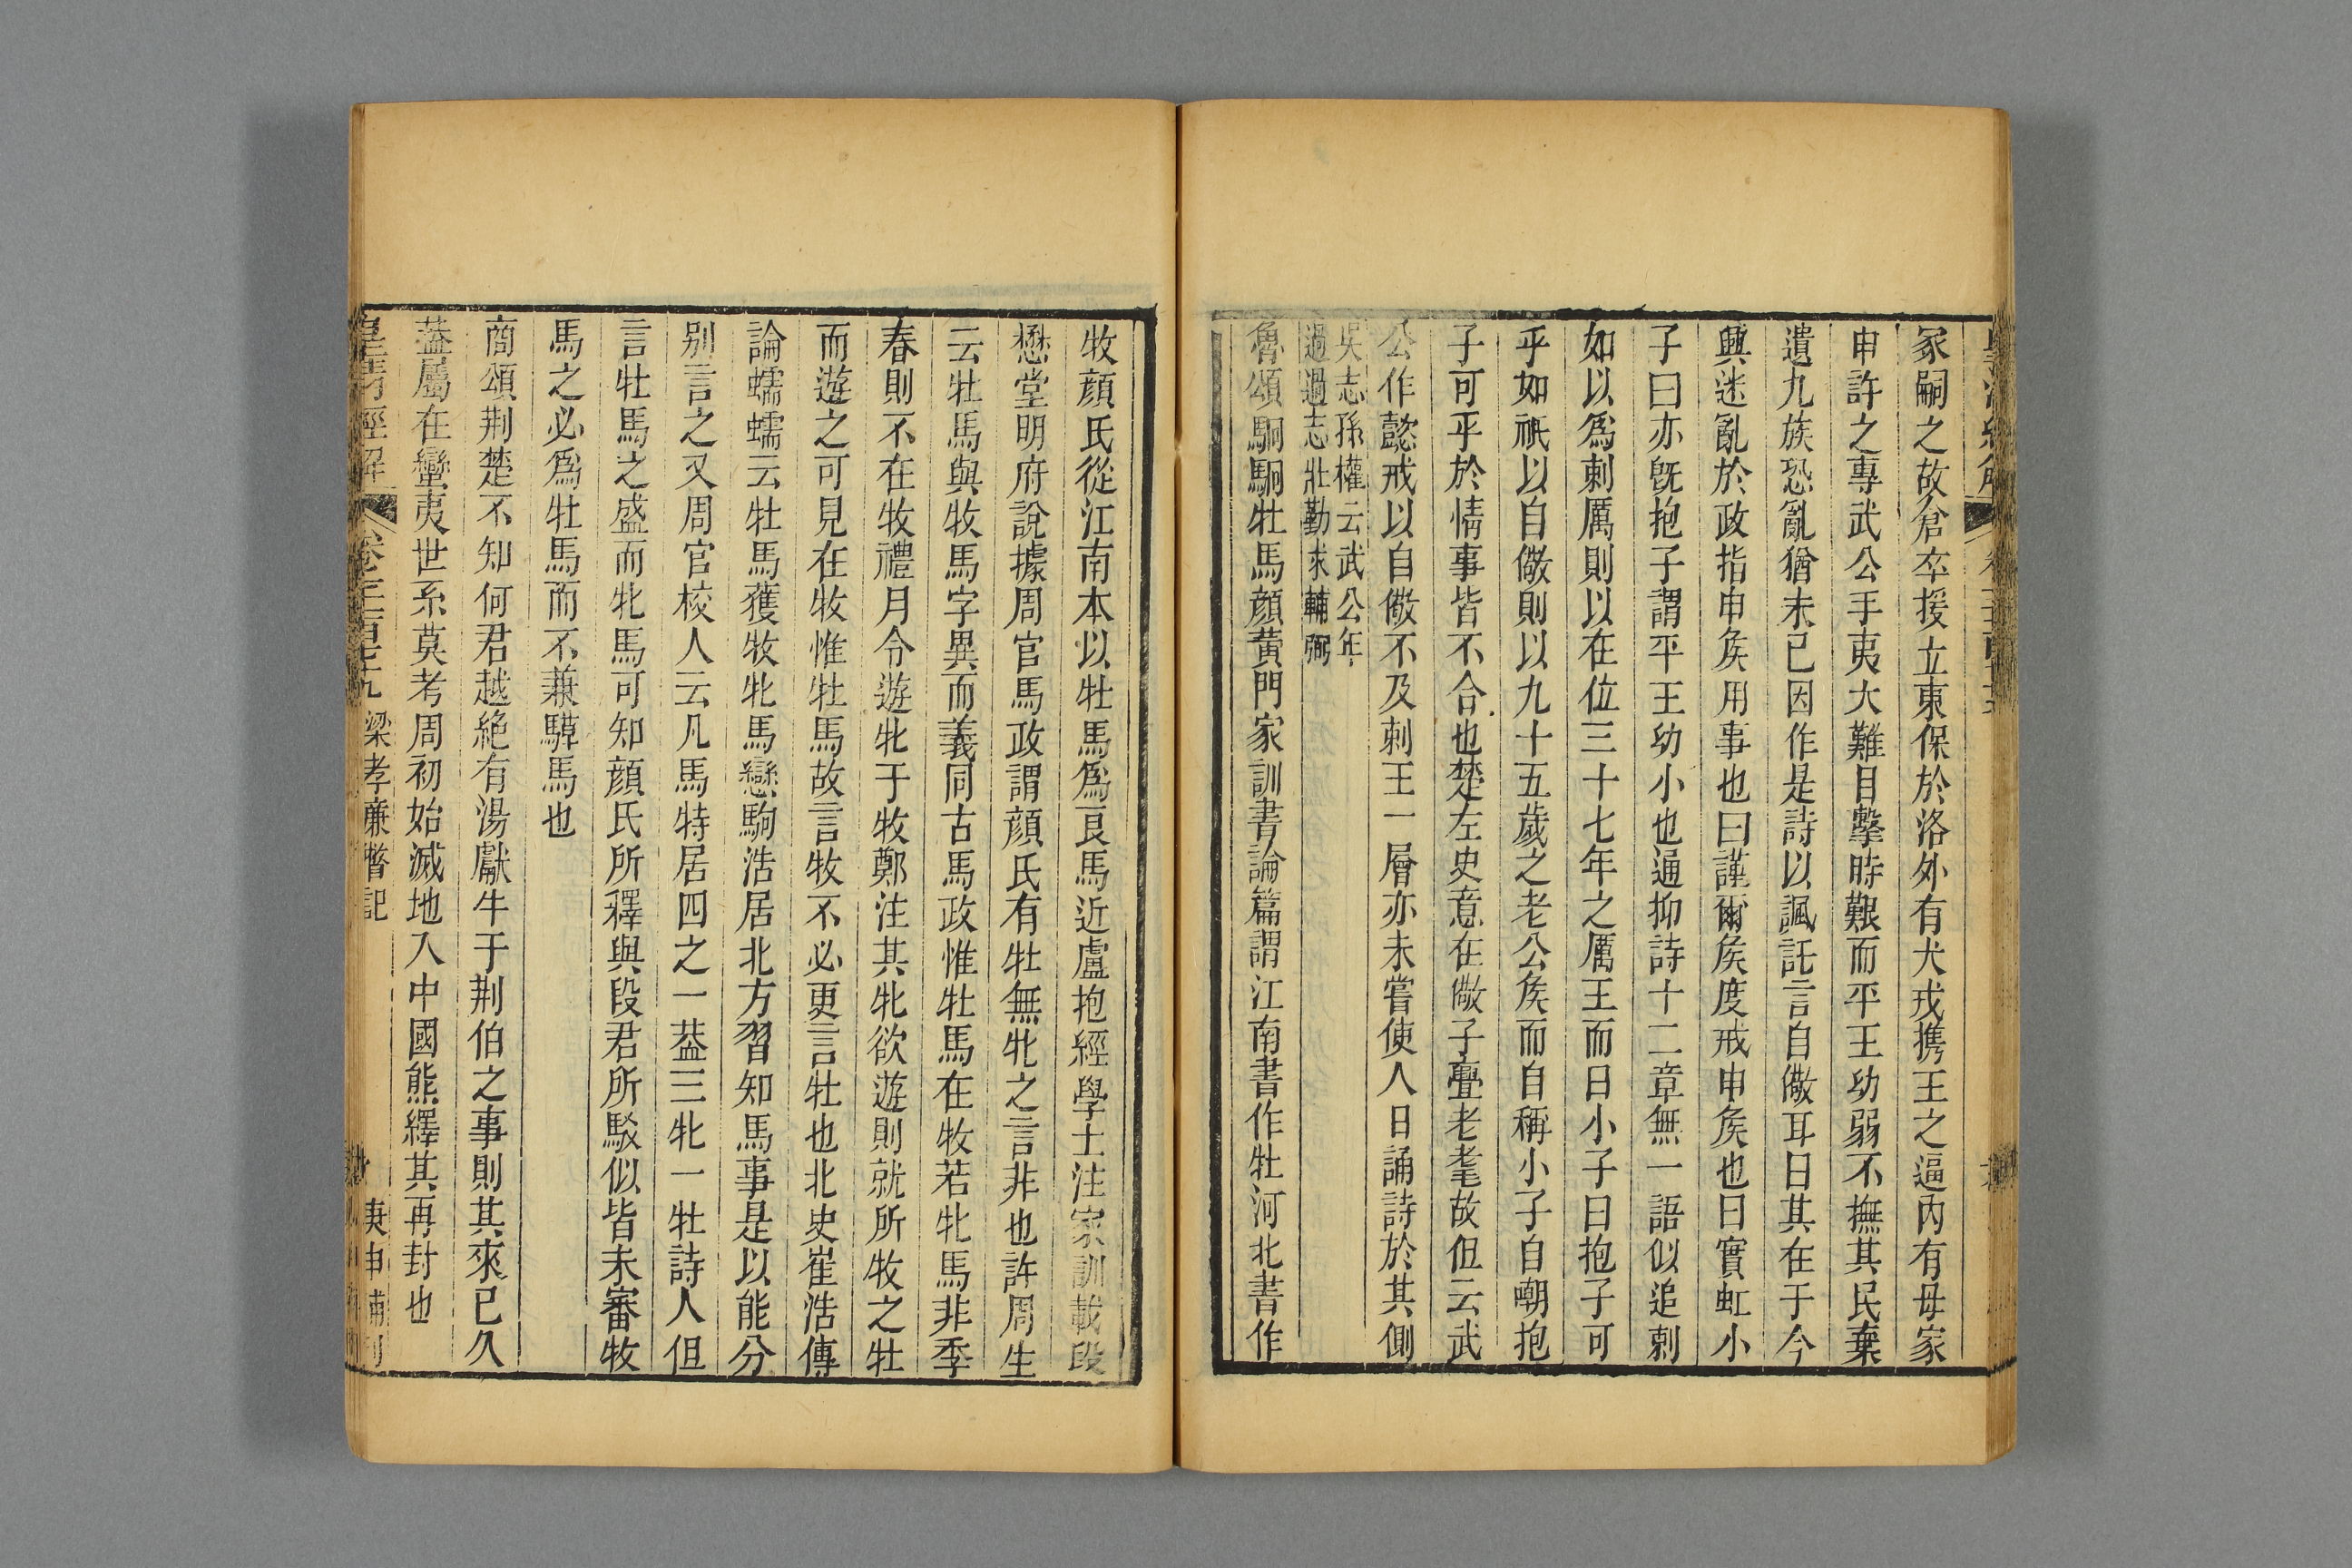 冢嗣之故倉卒援立東保於洛外有犬戎携王之逼內有母家
申許之專武公手夷大難目擊時艱而平王幼弱不撫其民棄
遺九族恐亂猶未已因作是詩以諷託言自儆耳曰其在于今
興迷亂於政指申矦用事也曰謹爾矦度戒申矦也曰實虹小
子曰亦旣抱子謂平王幼小也通抑詩十二章無一語似追刺
如以爲刺厲則以在位三十七年之厲王而曰小子曰抱子可
乎如祇以自儆則以九十五歲之老公矦而自稱小子自嘲抱
子可乎於情事皆不合也楚左史意在儆子亹老耄故但云武
公作懿戒以自儆不及刺王一層亦未嘗使人日誦詩於其側
吳志孫權云武公年
過過志壯勤求輔弼
魯頌駉駉牡馬顏黃門家訓書論篇謂江南書作牡河北書作
牧顏氏從江南本以牡馬爲良馬近盧抱經學士注家訓載段
懋堂明府說據周官馬政謂顏氏有牡無牝之言非也許周生
云牡馬與牧馬字異而義同古馬政惟牡馬在牧若牝馬非季
春則不在牧禮月令遊牝于牧鄭注其牝欲遊則就所牧之牡
而遊之可見在牧惟牡馬故言牧不必更言牡也北史崔浩傳
論蠕蠕云牡馬獲牧牝馬戀駒浩居北方習知馬事是以能分
別言之又周官校人云凡馬特居四之一葢三牝一牡詩人但
言牡馬之盛而牝馬可知顏氏所釋與段君所駁似皆未審牧
馬之必爲牡馬而不兼騲馬也
商頌荆楚不知何君越絶有湯獻牛于荆伯之事則其來已久
葢屬在蠻夷世系莫考周初始滅地入中國熊繹其再封也
皇清經解 梁孝廉瞥記 庚申補刊